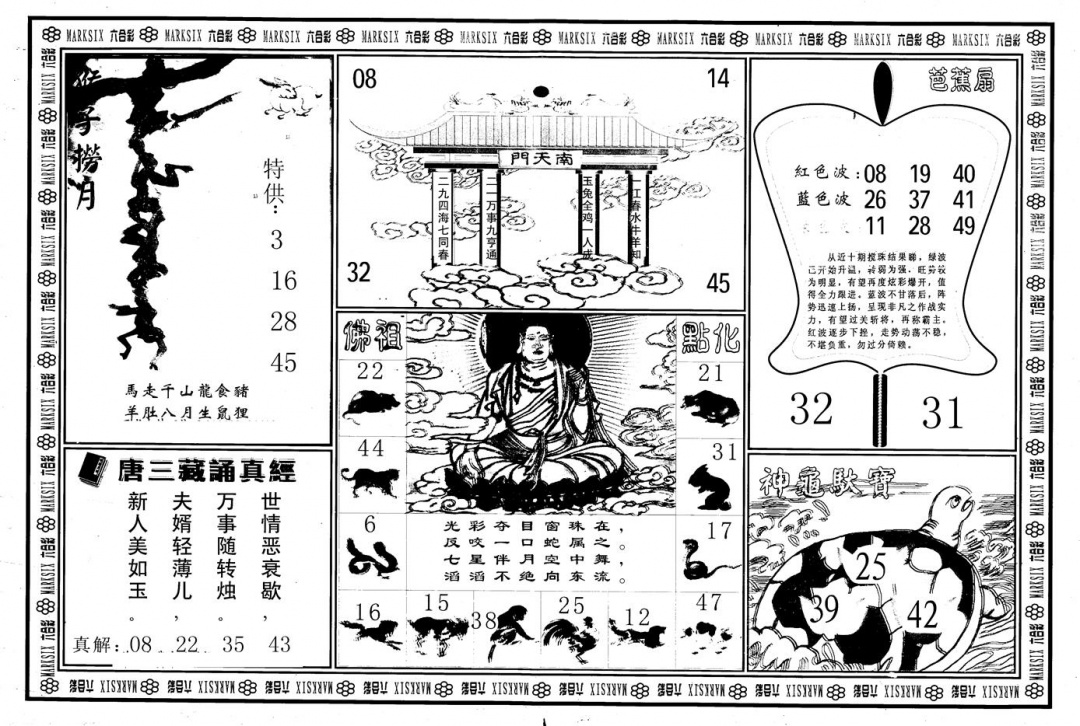 MARKSIX 六合彩 MARKSIX 六合彩 MARKSIX 六合彩 MARKSIX 六合彩 MARKSIX 六合彩 MARKSIX 六合彩 MARKSIX 六合彩 MARKSIX 六合彩 MARKSIX 六合彩 MARKSIX 六合彩
猴子撈月
特供:
3
16
28
45
馬走千山龍食豬
羊肚八月生鼠狸
唐三藏誦真經
世情恶衰歇，
万事随转烛。
夫婿轻薄儿，
新人美如玉。
真解: 08 22 35 43
08 14
南天門
二九四海七同春
二一万事九亨通
玉兔全鸡一人成
一江春水牛羊知
32 45
佛祖 點化
22 21
44 31
6 17
光彩夺目窗珠在，
反咬一口蛇属之。
七星伴月空中舞，
滔滔不绝向东流。
16 15 38 25 12 47
芭蕉扇
紅色波: 08 19 40
藍色波 26 37 41
11 28 49
从近十期搅珠结果睇，绿波
已开始升温，转弱为强，旺势较
为明显，有望再度炫彩爆开，值
得全力跟进。蓝波不甘落后，阵
势迅速上扬，呈现非凡之作战实
力，有望过关斩将，再称霸主。
红波逐步下挫，走势动荡不稳，
不堪负重，勿过分倚赖。
32 31
神龜馱寶
25
39
42